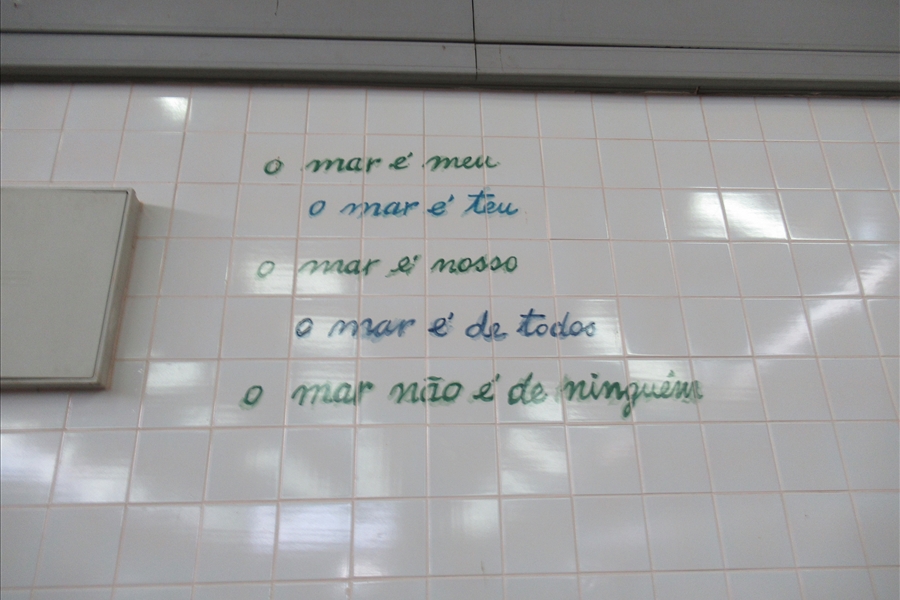 o mar é meu
o mar é teu
o mar é nosso
o mar é de todos
o mar não é de ninguém